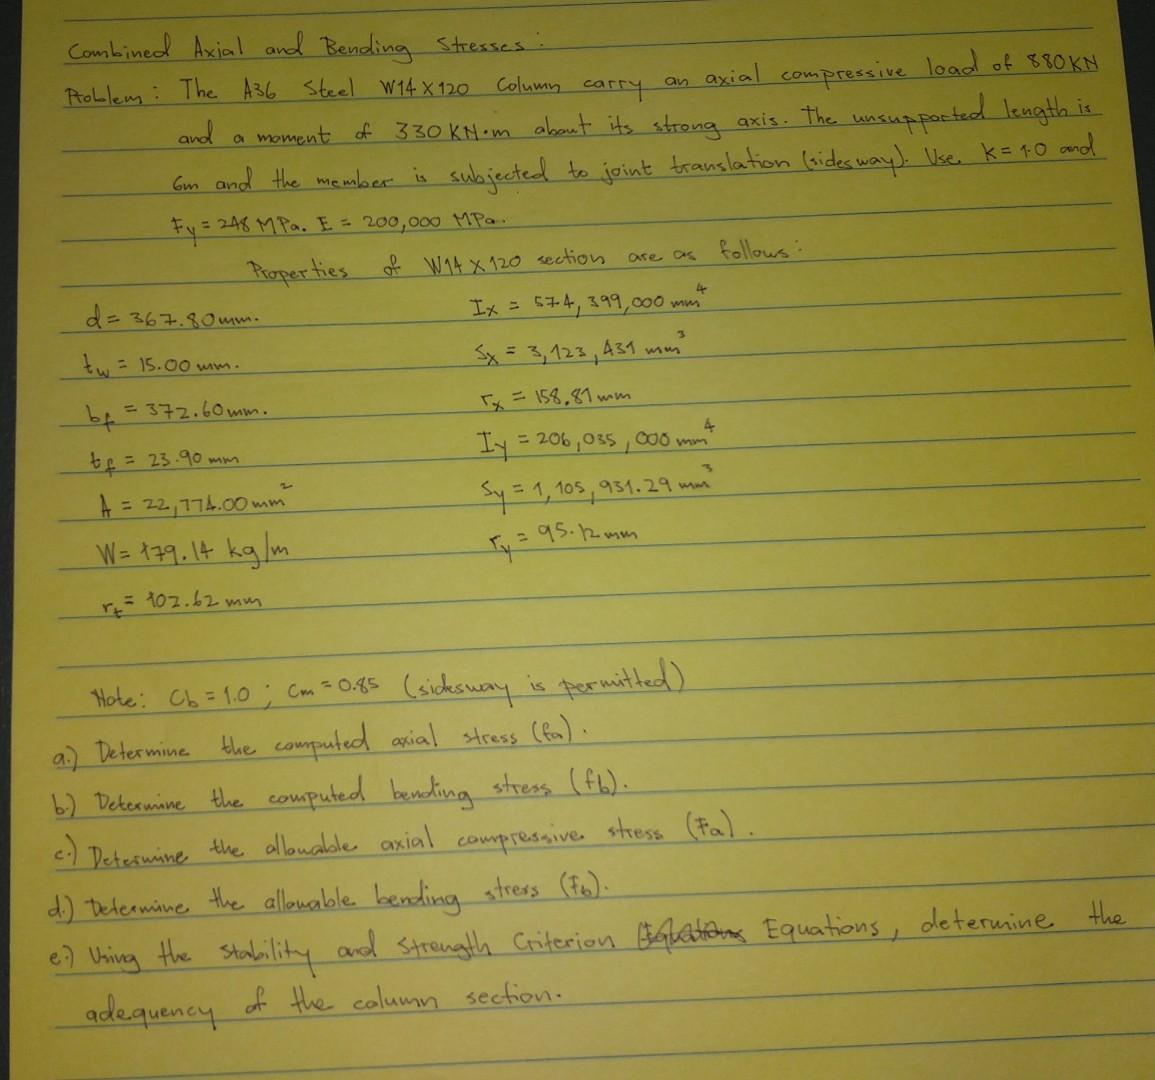 Combined Axial and Bending Stresses:
Problem: The A36 Steel W14 x 120 Column carry an axial compressive load of 880 KN
and a moment of 330 KN·m about its strong axis. The unsupported length is
6m and the member is subjected to joint translation (sidesway). Use K = 1.0 and
Fy = 248 MPa. E = 200,000 MPa.
Properties of W14 x 120 section are as follows:
d = 367.80 mm.
Ix = 574,399,000 mm⁴
tw = 15.00 mm.
Sx = 3,123,431 mm³
bf = 372.60 mm.
rx = 158.81 mm
tf = 23.90 mm
Iy = 206,035,000 mm⁴
A = 22,774.00 mm²
Sy = 1,105,931.29 mm³
W = 179.14 kg/m
ry = 95.12 mm
rt = 102.62 mm
Note: Cb = 1.0 ; Cm = 0.85 (sidesway is permitted)
a.) Determine the computed axial stress (fa).
b.) Determine the computed bending stress (fb).
c.) Determine the allowable axial compressive stress (Fa).
d.) Determine the allowable bending stress (Fb).
e.) Using the Stability and Strength Criterion Equations, determine the
adequency of the column section.